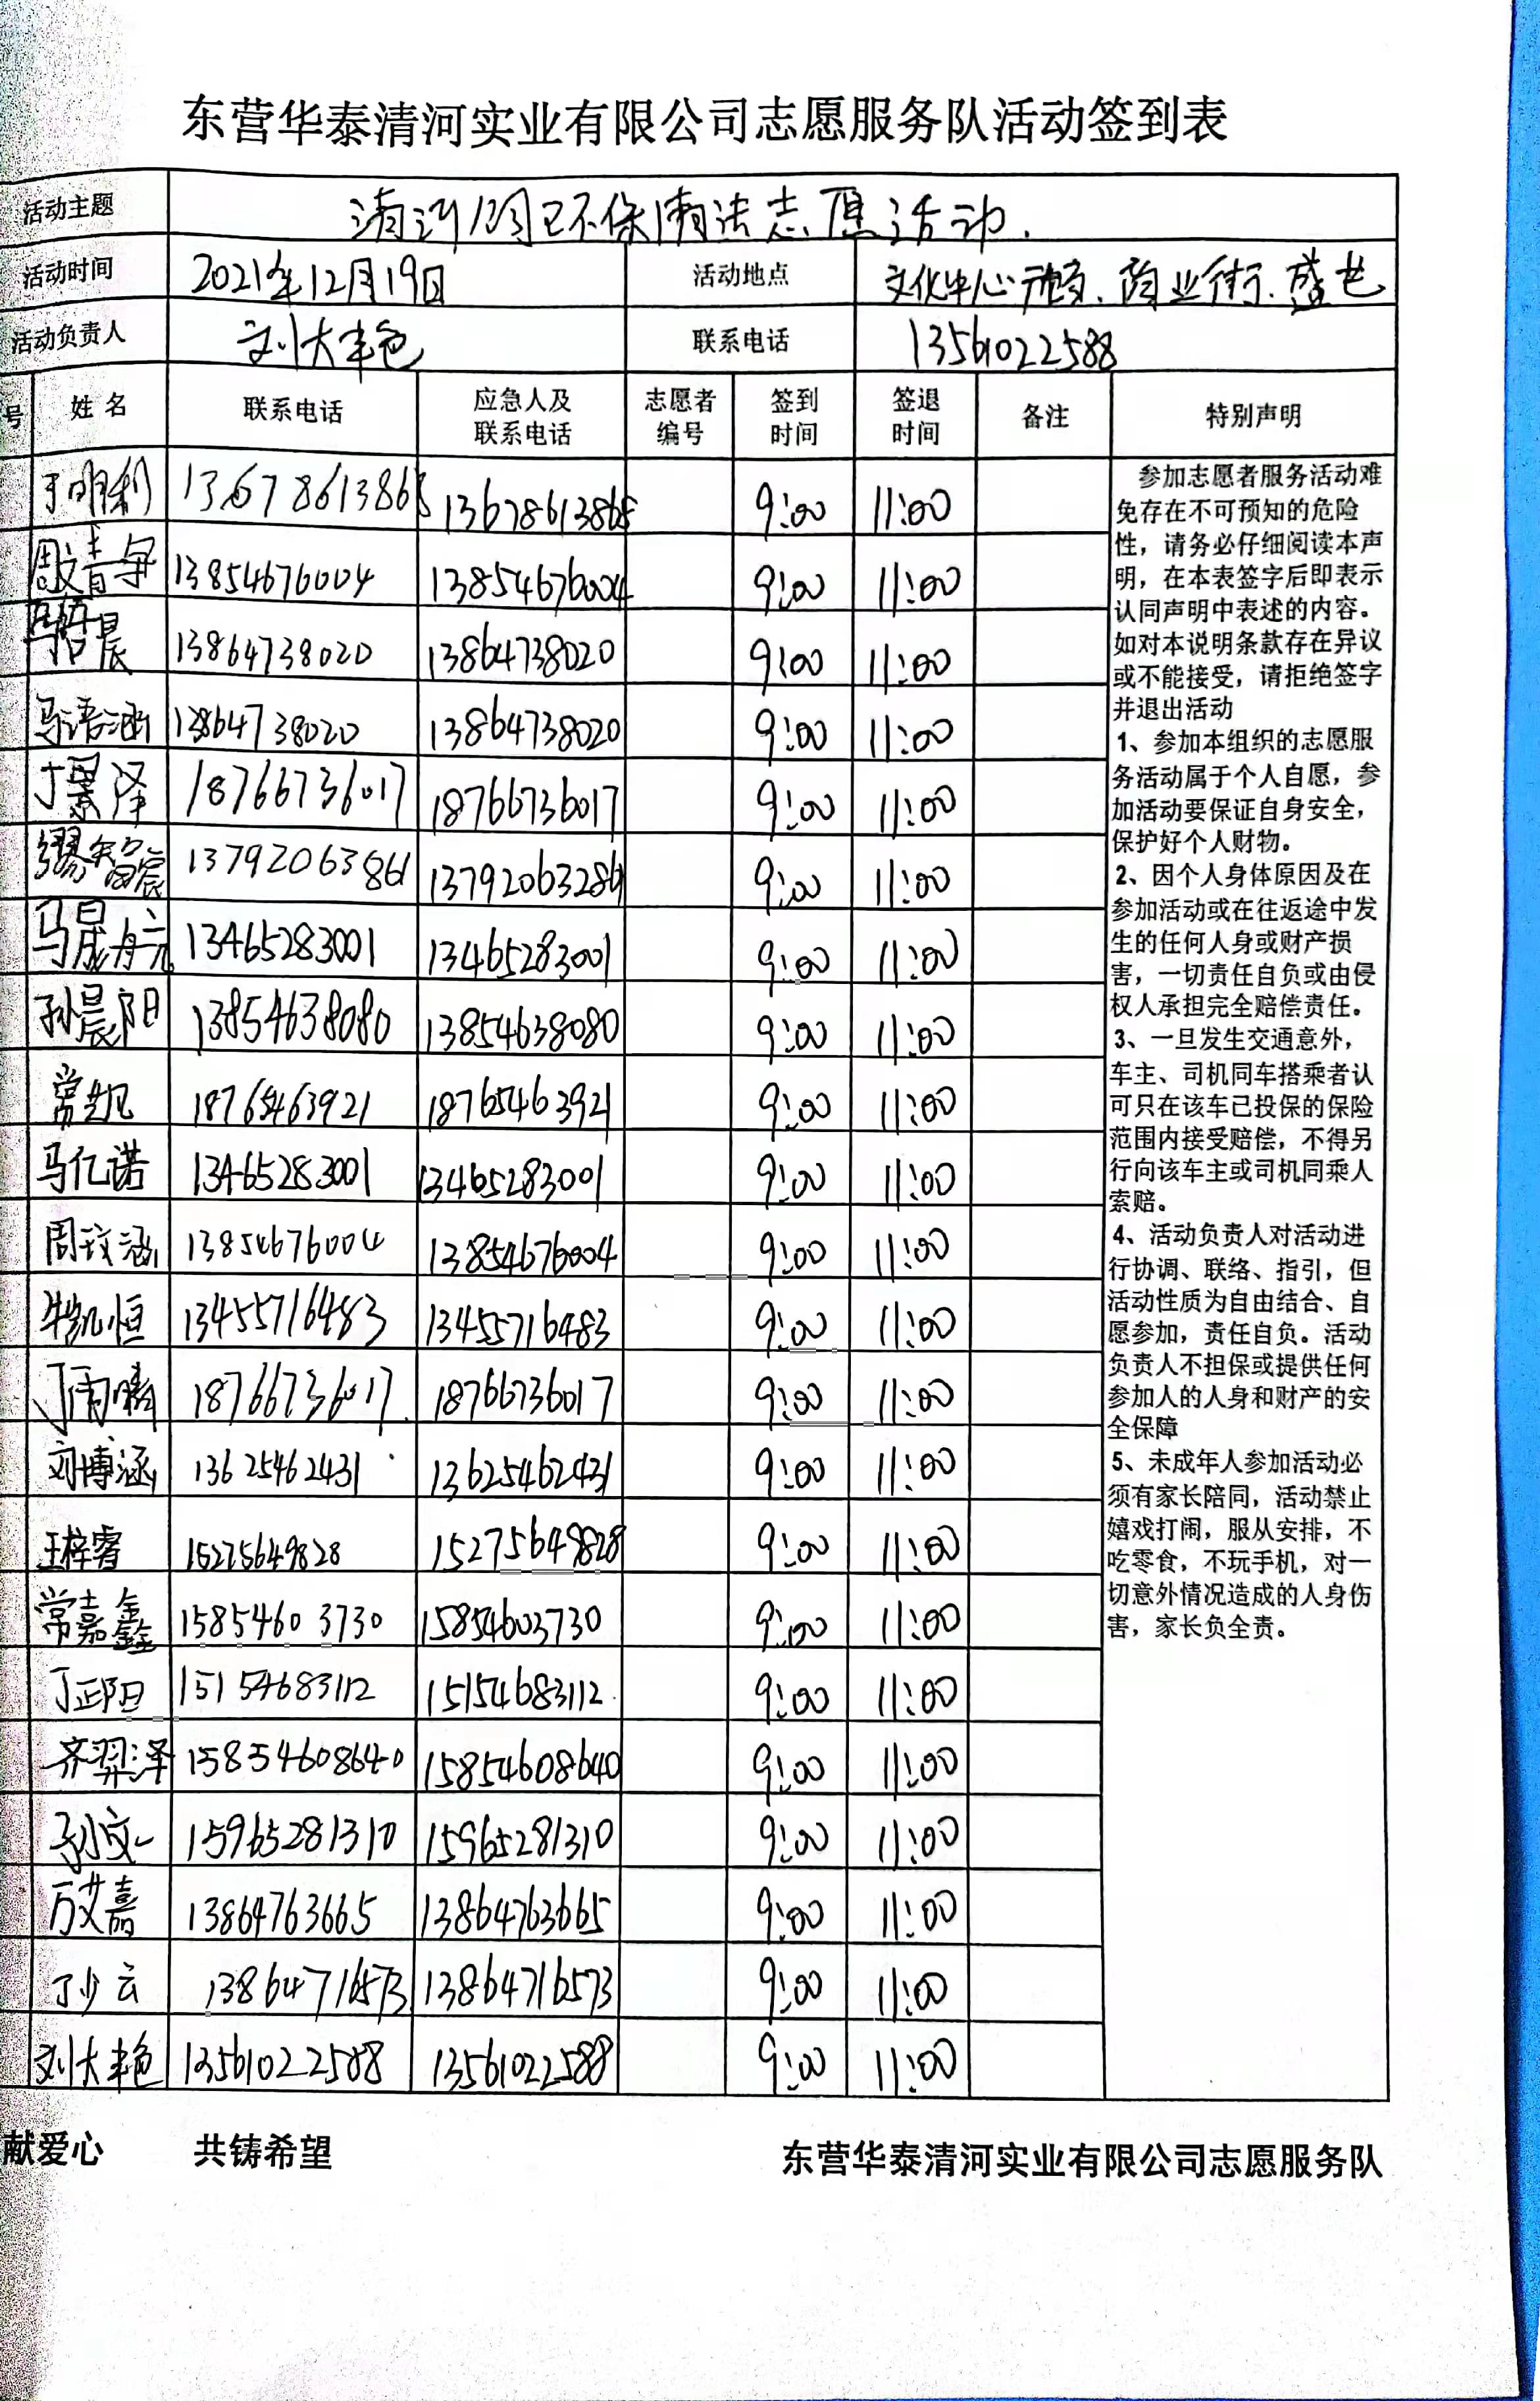 东营华泰清河实业有限公司志愿服务队活动签到表
活动主题 清河 环保清洁志愿活动.
活动时间 2021年12月19日 活动地点 文化中心 、商业街、
活动负责人 刘大艳 联系电话 13561022588
号 姓名 联系电话 应急人及联系电话 志愿者编号 签到时间 签退时间 备注 特别声明
于明利 13678613868 13678613868 9:00 11:00
13854676004 13854676004 9:00 11:00
13864738020 13864738020 9:00 11:00
马语涵 13864738020 13864738020 9:00 11:00
丁景泽 18766736017 18766736017 9:00 11:00
13792063861 13792063286 9:00 11:00
13465283001 13465283001 9:00 11:00
孙晨阳 13854638080 13854638080 9:00 11:00
常凯 18765463921 18765463921 9:00 11:00
马亿诺 13465283001 13465283001 9:00 11:00
周玟涵 13854676004 13854676004 9:00 11:00
牛凯恒 13455716483 13455716483 9:00 11:00
丁雨晴 18766736017 18766736017 9:00 11:00
刘博涵 13625462431 13625462431 9:00 11:00
王梓睿 15275649828 15275649828 9:00 11:00
常嘉鑫 15854603730 15854603730 9:00 11:00
丁正阳 15154683112 15154683112 9:00 11:00
齐羿泽 15854608640 15854608640 9:00 11:00
孙文一 15965281310 15965281310 9:00 11:00
万艾嘉 13864763665 13864763665 9:00 11:00
丁少云 13864716573 13864716573 9:00 11:00
刘大艳 13561022588 13561022588 9:00 11:00
参加志愿者服务活动难
免存在不可预知的危险
性，请务必仔细阅读本声
明，在本表签字后即表示
认同声明中表述的内容。
如对本说明条款存在异议
或不能接受，请拒绝签字
并退出活动
1、参加本组织的志愿服
务活动属于个人自愿，参
加活动要保证自身安全，
保护好个人财物。
2、因个人身体原因及在
参加活动或在往返途中发
生的任何人身或财产损
害，一切责任自负或由侵
权人承担完全赔偿责任。
3、一旦发生交通意外，
车主、司机同车搭乘者认
可只在该车已投保的保险
范围内接受赔偿，不得另
行向该车主或司机同乘人
索赔。
4、活动负责人对活动进
行协调、联络、指引，但
活动性质为自由结合、自
愿参加，责任自负。活动
负责人不担保或提供任何
参加人的人身和财产的安
全保障
5、未成年人参加活动必
须有家长陪同，活动禁止
嬉戏打闹，服从安排，不
吃零食，不玩手机，对一
切意外情况造成的人身伤
害，家长负全责。
献爱心 共铸希望 东营华泰清河实业有限公司志愿服务队